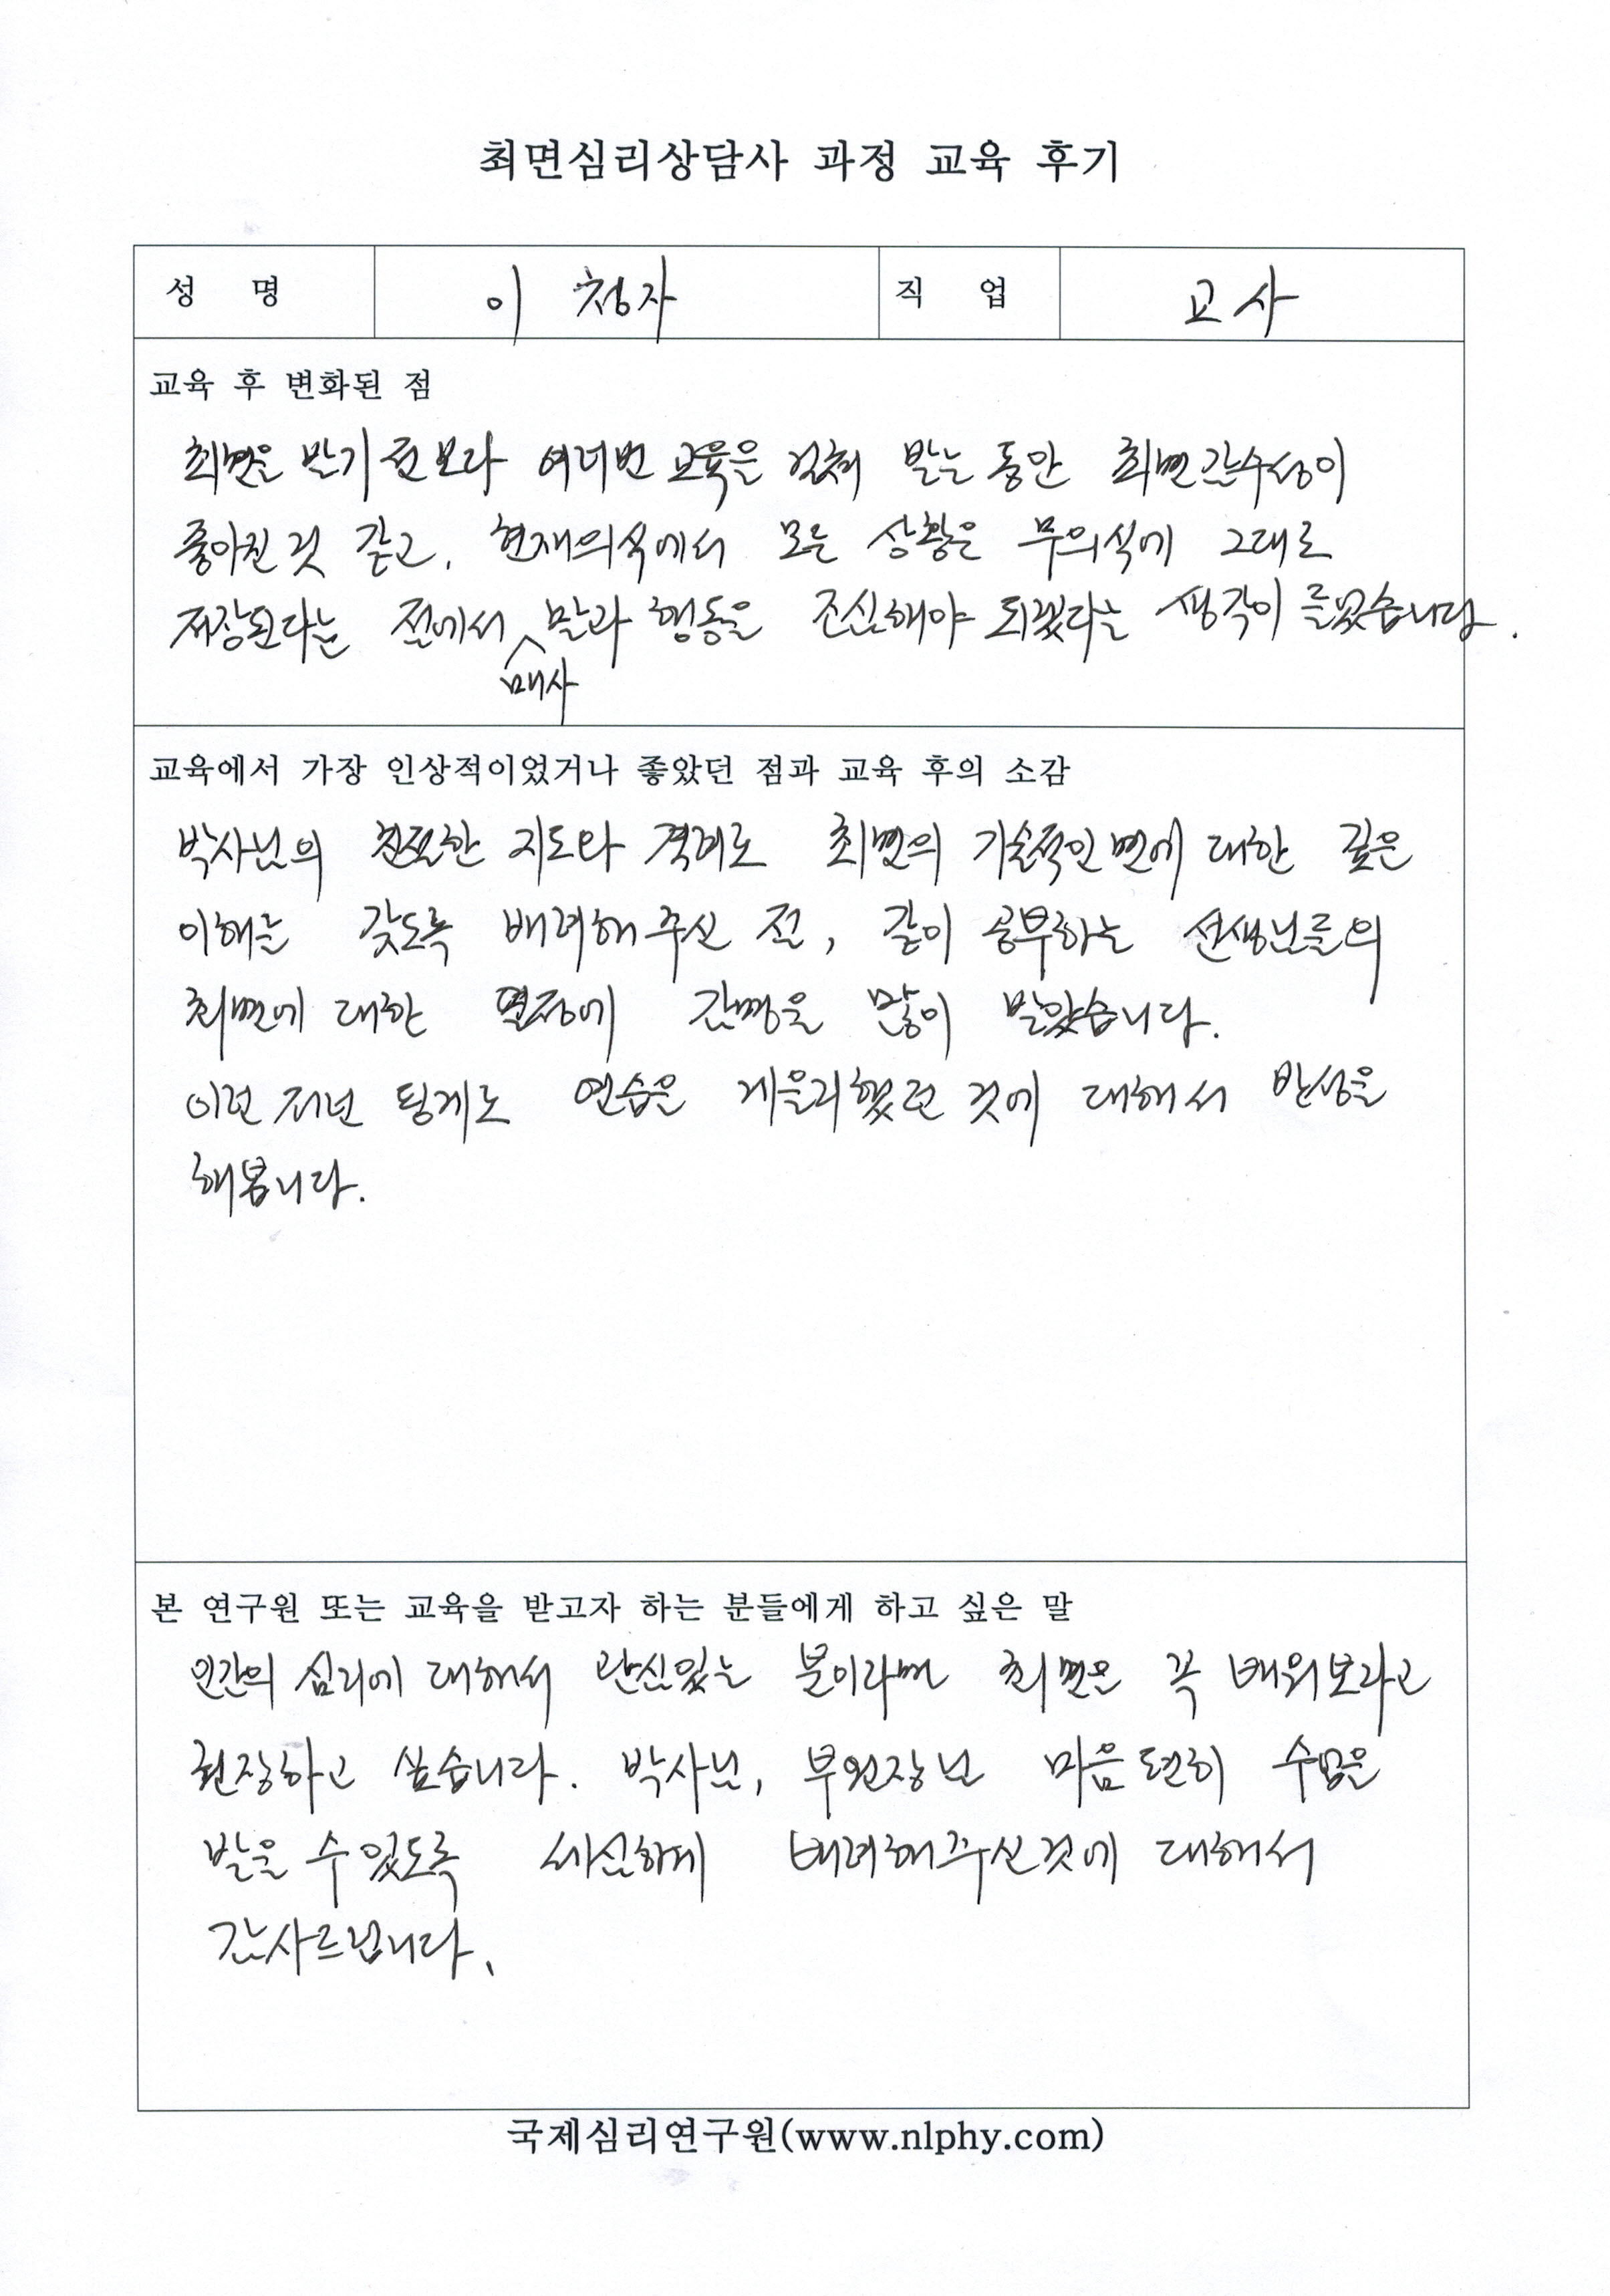 최면심리상담사 과정 교육 후기
성 명 이 청자 직 업 교사
교육 후 변화된 점
최면을 받기 전보다 여러번 교육을 걸쳐 받는 동안 최면감수성이
좋아진 것 같고, 현재의식에서 모든 상황은 무의식에 그대로
저장된다는 점에서 매사 말과 행동을 조심해야 되겠다는 생각이 들었습니다.
교육에서 가장 인상적이었거나 좋았던 점과 교육 후의 소감
박사님의 친절한 지도와 격려로 최면의 기술적인 면에 대한 깊은
이해를 갖도록 배려해 주신 점, 같이 공부하는 선생님들의
최면에 대한 열정에 감명을 많이 받았습니다.
이런 저런 핑계로 연습을 게을리했던 것에 대해서 반성을
해봅니다.
본 연구원 또는 교육을 받고자 하는 분들에게 하고 싶은 말
인간의 심리에 대해서 관심있는 분이라면 최면은 꼭 배워보라고
권장하고 싶습니다. 박사님, 부원장님 마음 편히 수업을
받을 수 있도록 세심하게 배려해주신것에 대해서
감사드립니다.
국제심리연구원(www.nlphy.com)